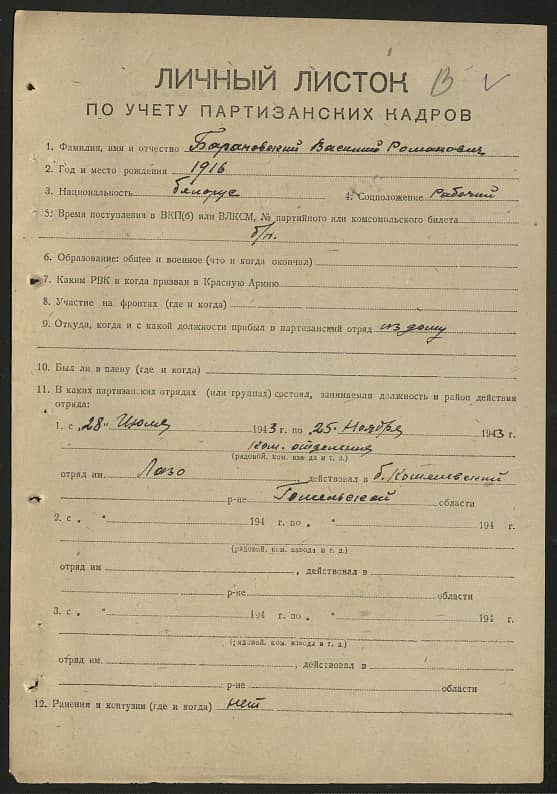 ЛИЧНЫЙ ЛИСТОК В
ПО УЧЕТУ ПАРТИЗАНСКИХ КАДРОВ
1. Фамилия, имя и отчество Барановский Василий Романович
2. Год и место рождения 1916
3. Национальность белорус 4. Соцположение Рабочий
5. Время поступления в ВКП(б) или ВЛКСМ, № партийного или комсомольского билета
б/п.
6. Образование: общее и военное (что и когда окончил)
7. Каким РВК и когда призван в Красную Армию
8. Участие на фронтах (где и когда)
9. Откуда, когда и с какой должности прибыл в партизанский отряд из дому
10. Был ли в плену (где и когда)
11. В каких партизанских отрядах (или группах) состоял, занимаемая должность и район действия
отряда:
1. с „28“ Июля 1943 г. по „25“ Ноября 1943 г.
ком. отделения
(рядовой, ком. взвода и т. д.)
отряд им. Лазо, действовал в б. Кошелевский
р-не Гомельской области
2. с „ “ 194 г. по „ “ 194 г.
(рядовой, ком. взвода и т. д.)
отряд им , действовал в
р-не области
3. с „ “ 194 г. по „ “ 194 г.
(рядовой, ком. взвода и т. д.)
отряд им. , действовал в
р-не области
12. Ранения и контузии (где и когда) нет